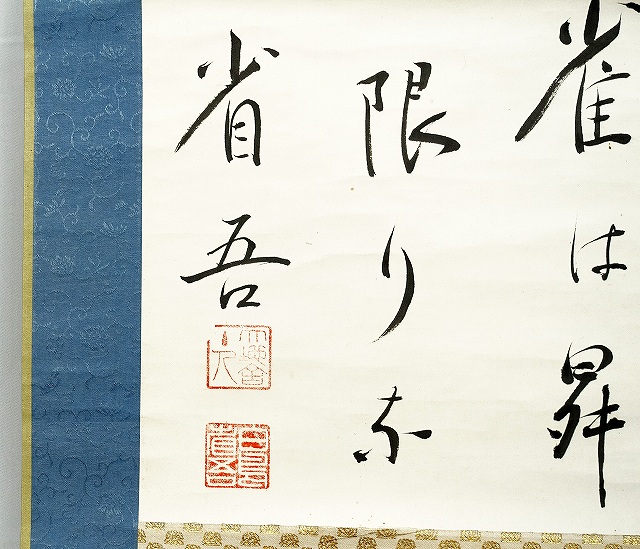 雀は昇
限りな
省吾